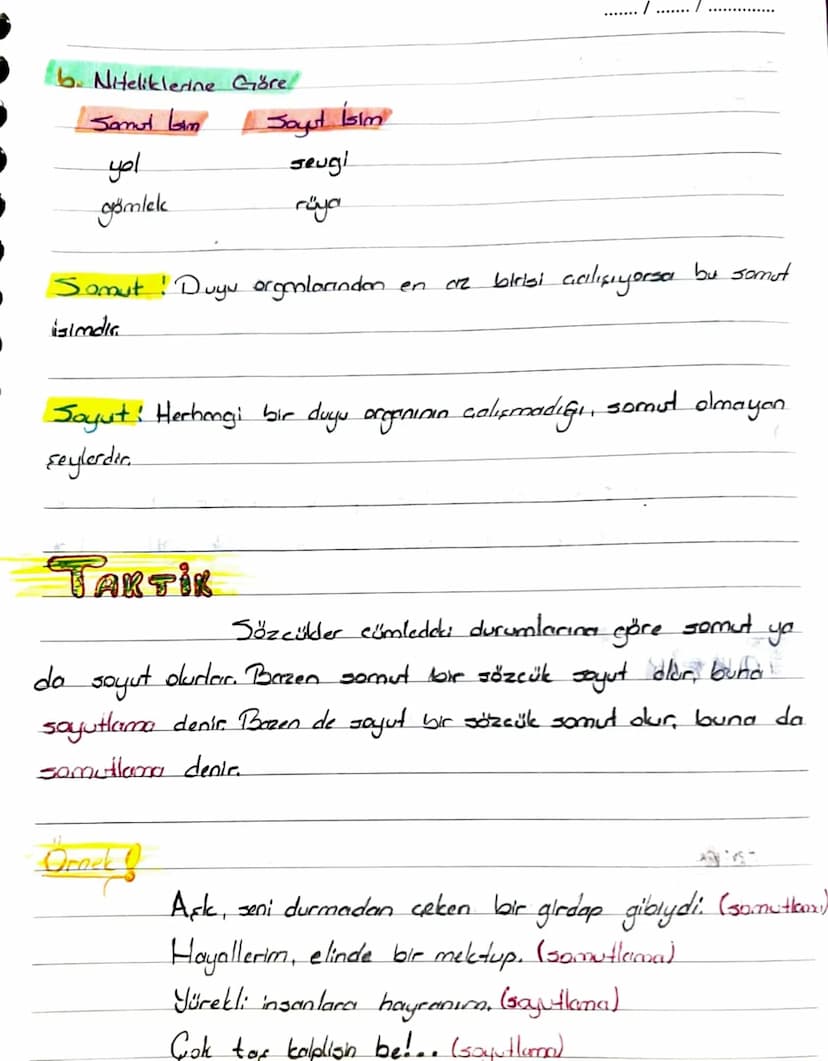 ....... / ....... / ..............
b. Niteliklerine Göre
Somut İsim Soyut İsim
yol sevgi
gömlek rüya
Somut ! Duyu organlarından en az birisi çalışıyorsa bu somut
isimdir.
Soyut! Herhangi bir duyu organının çalışmadığı, somut olmayan
şeylerdir.
TAKTİK
Sözcükler cümledeki durumlarına göre somut ya
da soyut olurlar. Bazen somut bir sözcük soyut olur, buna
soyutlama denir. Bazen de soyut bir sözcük somut olur, buna da
somutlama denir.
Örnek!
Aşk, seni durmadan çeken bir girdap gibiydi. (somutlama)
Hayallerim, elinde bir mektup. (somutlama)
Yürekli insanlara hayranım. (soyutlama)
Çok taş kalplisin be!.. (soyutlama)